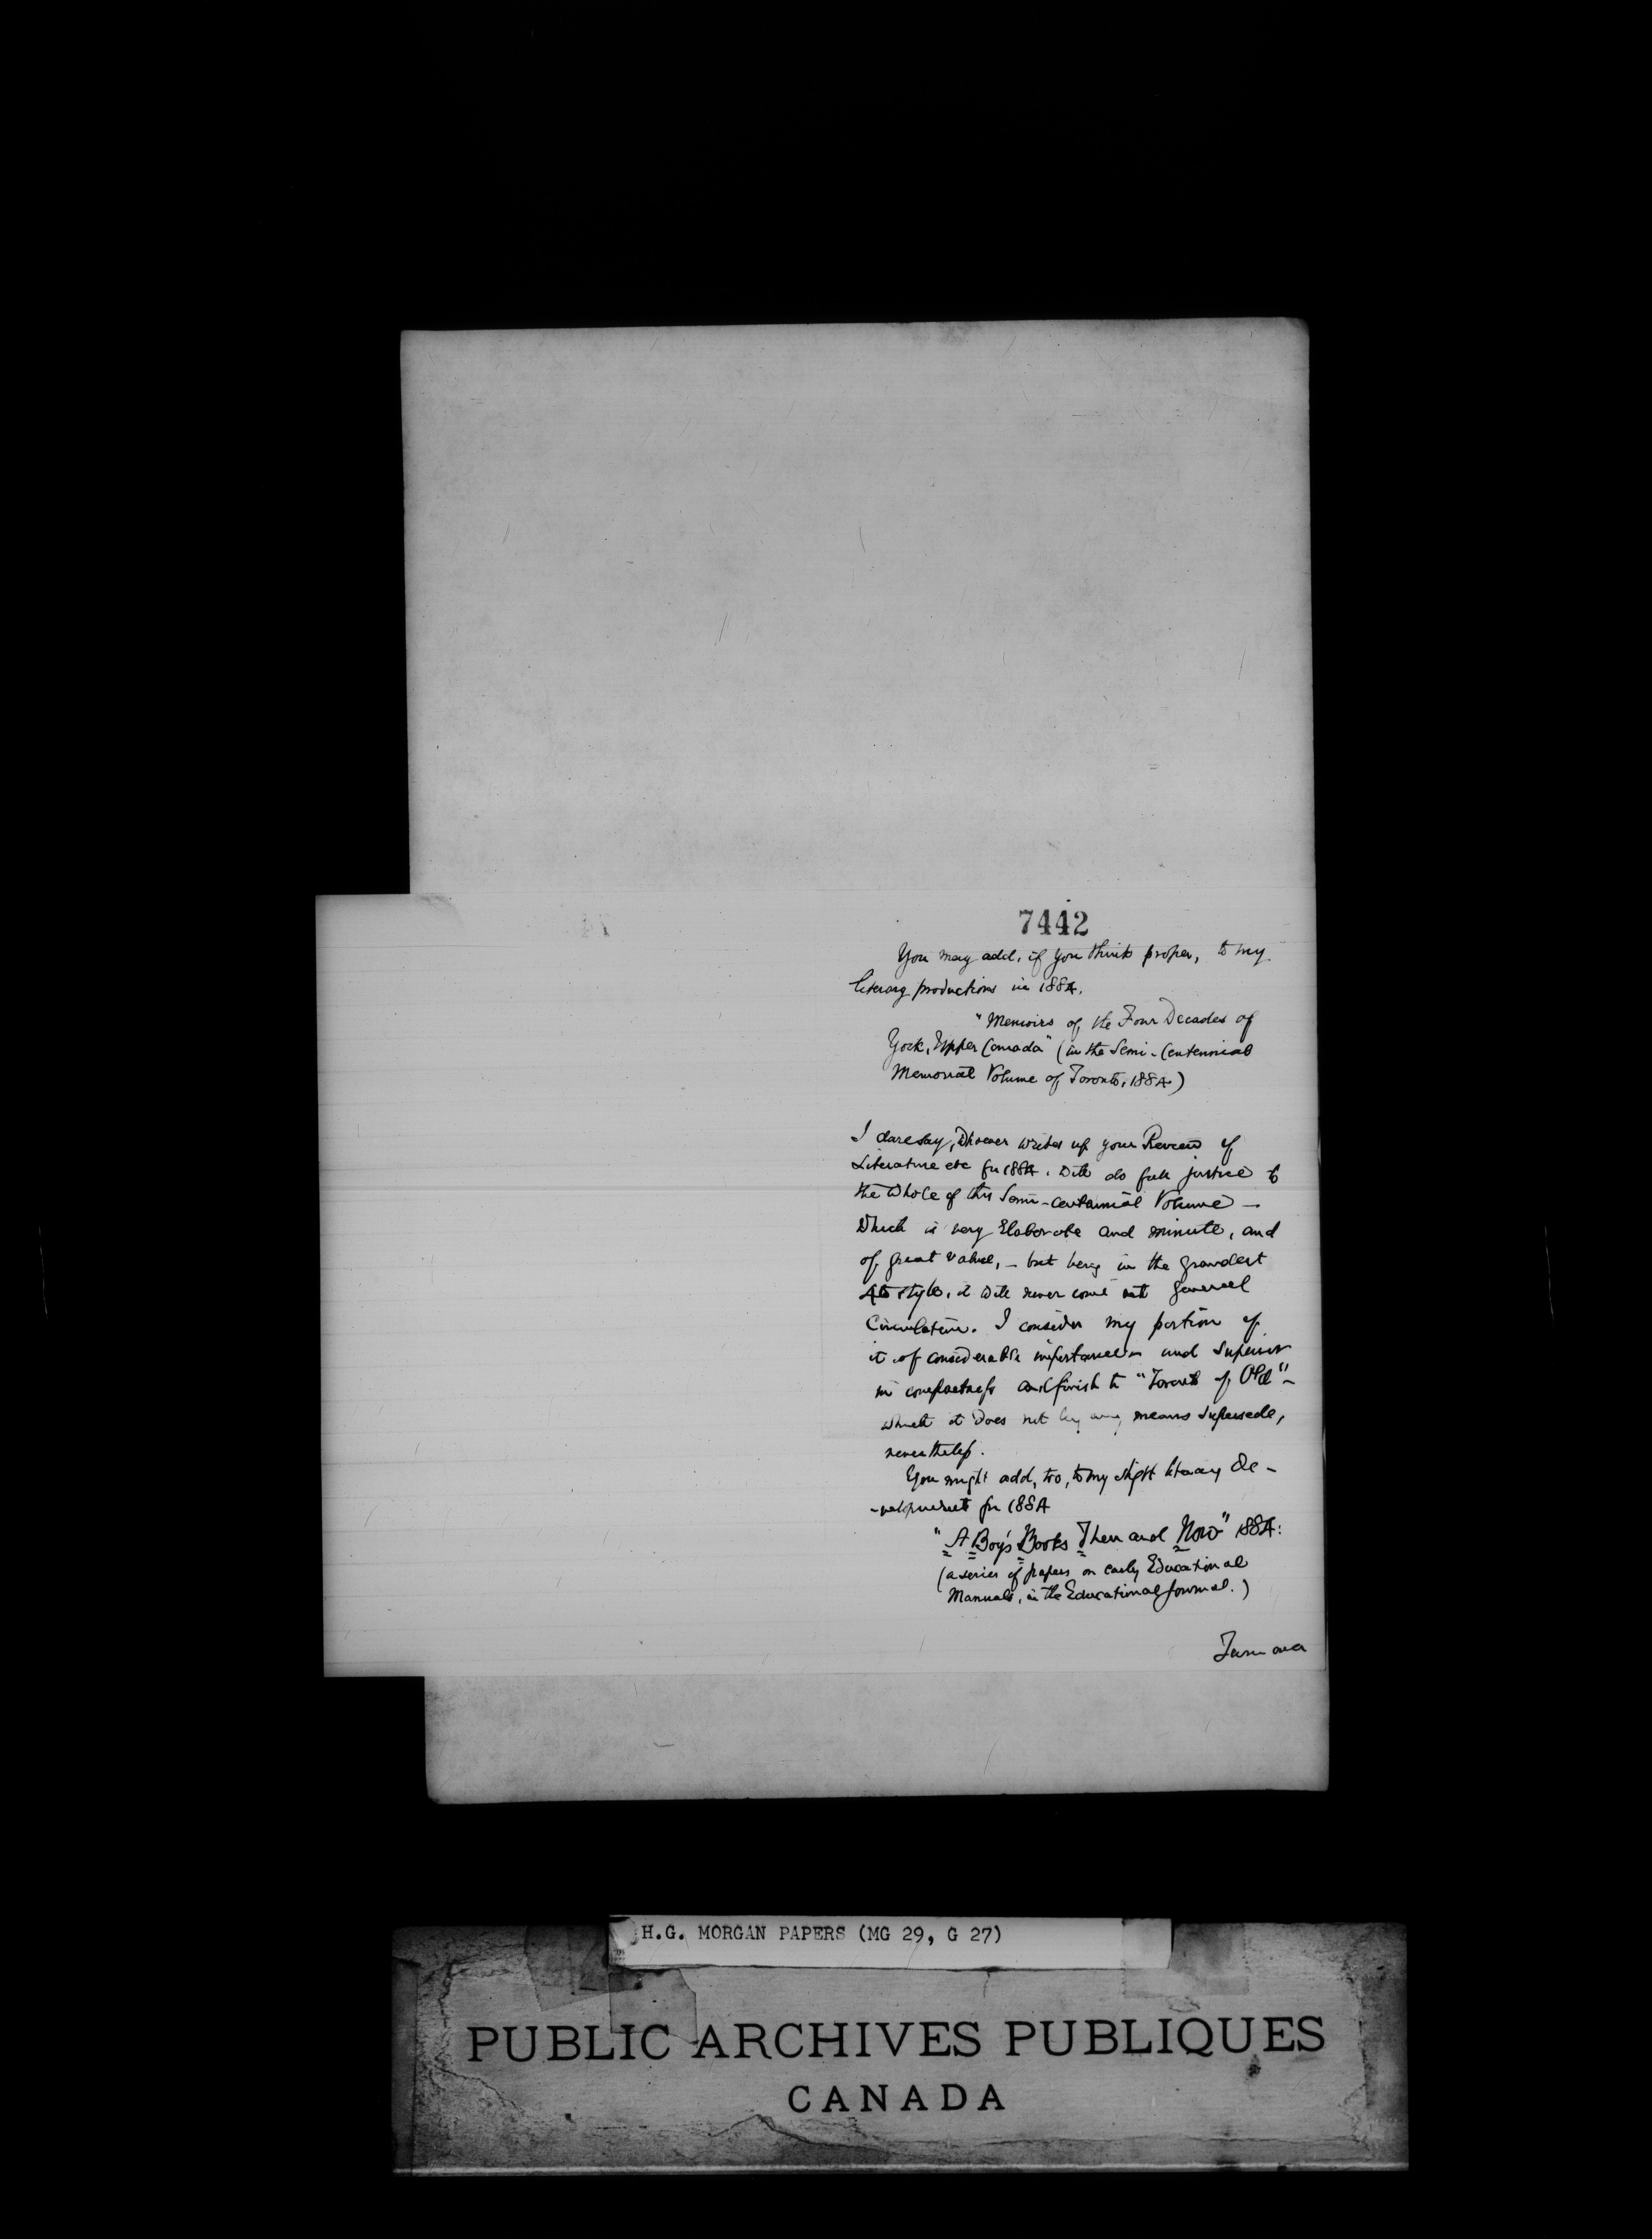 7442
You may add, if you think proper, to my
literary productions in 1884.
"Memoirs of the Four Decades of
York, Upper Canada" (in the Semi-Centennial
Memorial Volume of Toronto, 1884)
I dare say, whoever writes up your Review of
Literature etc for 1884. will do full justice to
the whole of this Semi-centennial Volume —
Which is very elaborate and minute, and
of great value, — but being in the grandest
4to style, it will never come into general
Circulation. I consider my portion of
it of considerable importance and superior
in compactness and finish to "Toronto of Old" —
which it does not by any means supersede,
nevertheless.
You might add, too, to my slight literary de-
-velopment for 1884
"A Boy's Books Then and Now" 1884:
(a series of papers on early Educational
Manuals, in the Educational Journal.)
Turn over
H.G. MORGAN PAPERS (MG 29, G 27)
PUBLIC ARCHIVES PUBLIQUES
CANADA